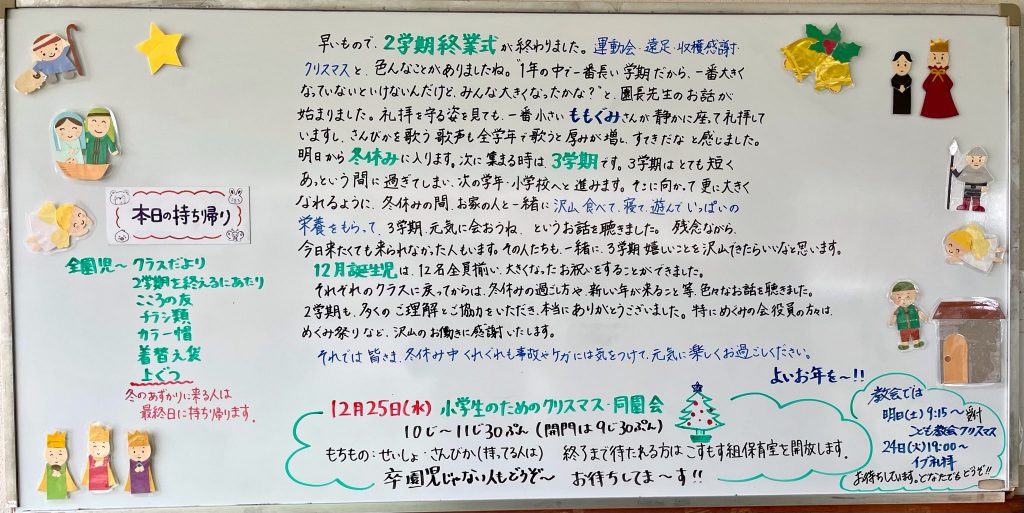 早いもので、2学期終業式が終わりました。運動会・遠足・収穫感謝・
クリスマスと、色んなことがありましたね。"1年の中で一番長い学期だから、一番大きく
なっていないといけないんだけど、みんな大きくなったかな？"と、園長先生のお話が
始まりました。礼拝を守る姿を見ても、一番小さいももぐみさんが静かに座って礼拝して
いますし、さんびかを歌う歌声も全学年で歌うと厚みが増し、すてきだなと感じました。
明日から冬休みに入ります。次に集まる時は3学期です。3学期はとても短く
あっという間に過ぎてしまい、次の学年・小学校へと進みます。そこに向かって更に大きく
なれるように、冬休みの間、お家の人と一緒に沢山食べて、寝て、遊んでいっぱいの
栄養をもらって、3学期、元気に会おうね、というお話を聴きました。残念ながら、
今日来たくても来られなかった人もいます。その人たちも、一緒に、3学期嬉しいことを沢山できたらいいなと思います。
12月誕生児は、12名全員揃い、大きくなったお祝いをすることができました。
それぞれのクラスに戻ってからは、冬休みの過ごし方や、新しい年が来ること等、色々なお話を聴きました。
2学期も、多くのご理解とご協力をいただき、本当にありがとうございました。特にめぐみの会役員の方々は、
めぐみ祭りなど、沢山のお働きに感謝いたします。
それでは皆さま、冬休み中くれぐれも事故やケガには気をつけて、元気に楽しくお過ごしください。
よいお年を〜!!
本日の持ち帰り
全園児〜クラスだより
2学期を終えるにあたり
こころの友
チラシ類
カラー帽
着替え袋
上ぐつ
冬のあずかりに来る人は
最終日に持ち帰ります。
12月25日(水) 小学生のためのクリスマス・同園会
10じ〜11じ30ぷん(開門は9じ30ぷん)
もちもの:せいしょ・さんびか(持ってる人は) 終了まで待たれる方はこすもす組保育室を開放します。
卒園児じゃない人もどうぞ〜 お待ちしてま〜す!!
教会では
明日(土)9:15〜
こども教会クリスマス
24日(火)19:00〜
イブ礼拝
お待ちしています。どなたでもどうぞ!!